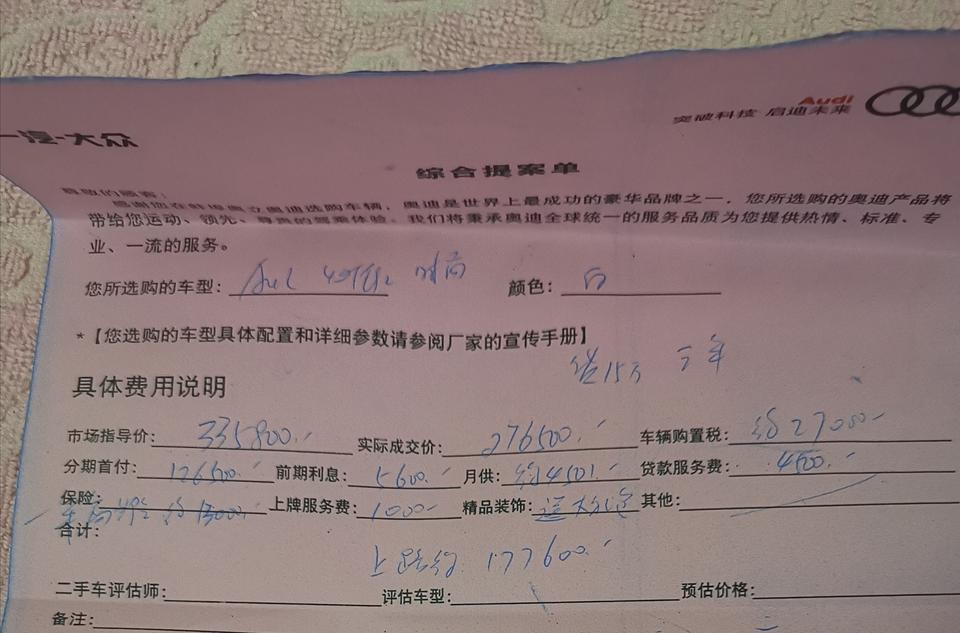 Audi
一汽-大众 突破科技 启迪未来
综合提案单
尊敬的顾客:
感谢您在蚌埠奥立奥迪选购车辆,奥迪是世界上最成功的豪华品牌之一,您所选购的奥迪产品将
带给您运动、领先、尊贵的驾乘体验。我们将秉承奥迪全球统一的服务品质为您提供热情、标准、专
业、一流的服务。
您所选购的车型: 时尚 颜色: 白
*【您选购的车型具体配置和详细参数请参阅厂家的宣传手册】
贷15万 三年
具体费用说明
市场指导价: 335800.- 实际成交价: 276500.- 车辆购置税: 约27000-
分期首付: 126500.- 前期利息: 5600.- 月供: 约4501.- 贷款服务费: 4500.-
保险: 约13000.- 上牌服务费: 1000- 精品装饰: 送大礼包 其他:
合计:
上路约 177600.-
二手车评估师: 评估车型: 预估价格:
备注: